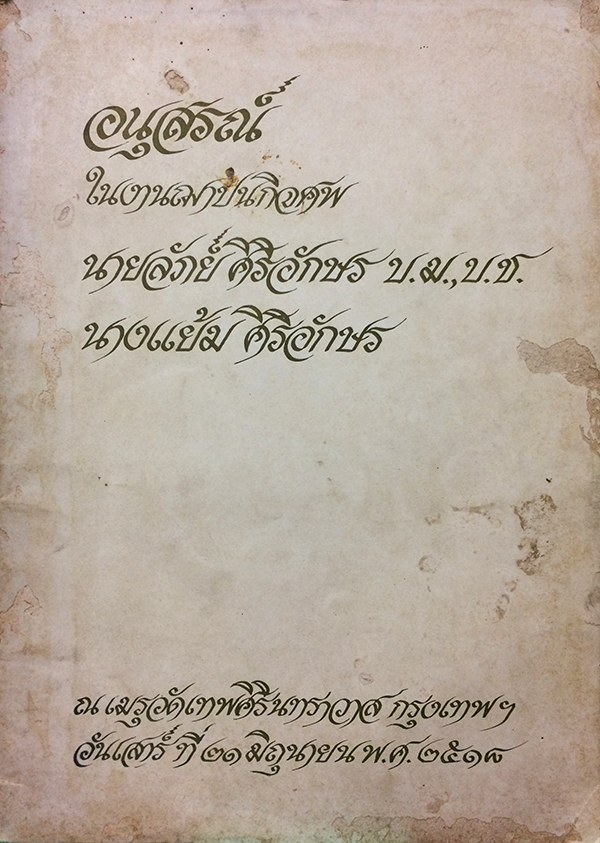 อนุสรณ์
ในงานฌาปนกิจศพ
นายลัภย์ ศิริอักษร บ.ม.,บ.ช.
นางแย้ม ศิริอักษร
ณ เมรุวัดเทพศิรินทราวาส กรุงเทพฯ
วันเสาร์ ที่ ๒๑ มิถุนายน พ.ศ. ๒๕๑๘